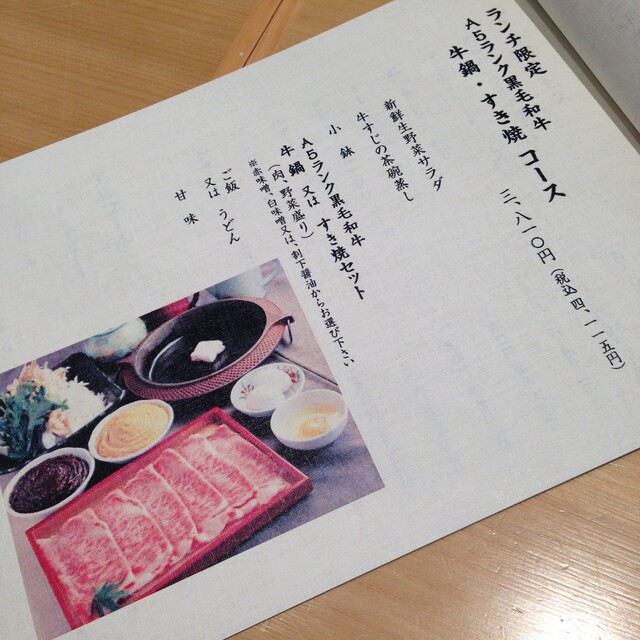 ランチ限定
A5ランク黒毛和牛
牛鍋・すき焼コース
三、八一〇円(税込四、一一五円)
新鮮生野菜サラダ
牛すじの茶碗蒸し
小鉢
A5ランク黒毛和牛
牛鍋 又は すき焼セット
(肉、野菜盛り)
※赤味噌、白味噌又は、割下醤油からお選び下さい
ご飯
又は うどん
甘味